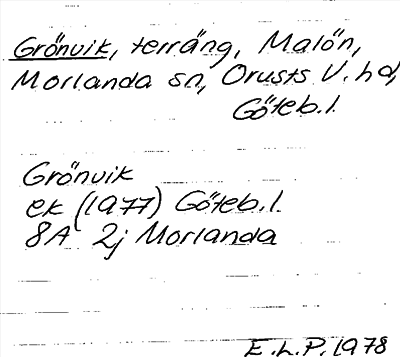 Grönvik, terräng, Malön,
Morlanda sn, Orusts V. hd,
Göteb.l.
Grönvik
ek (1977) Göteb.l.
8A 2j Morlanda
E.L.P. 1978